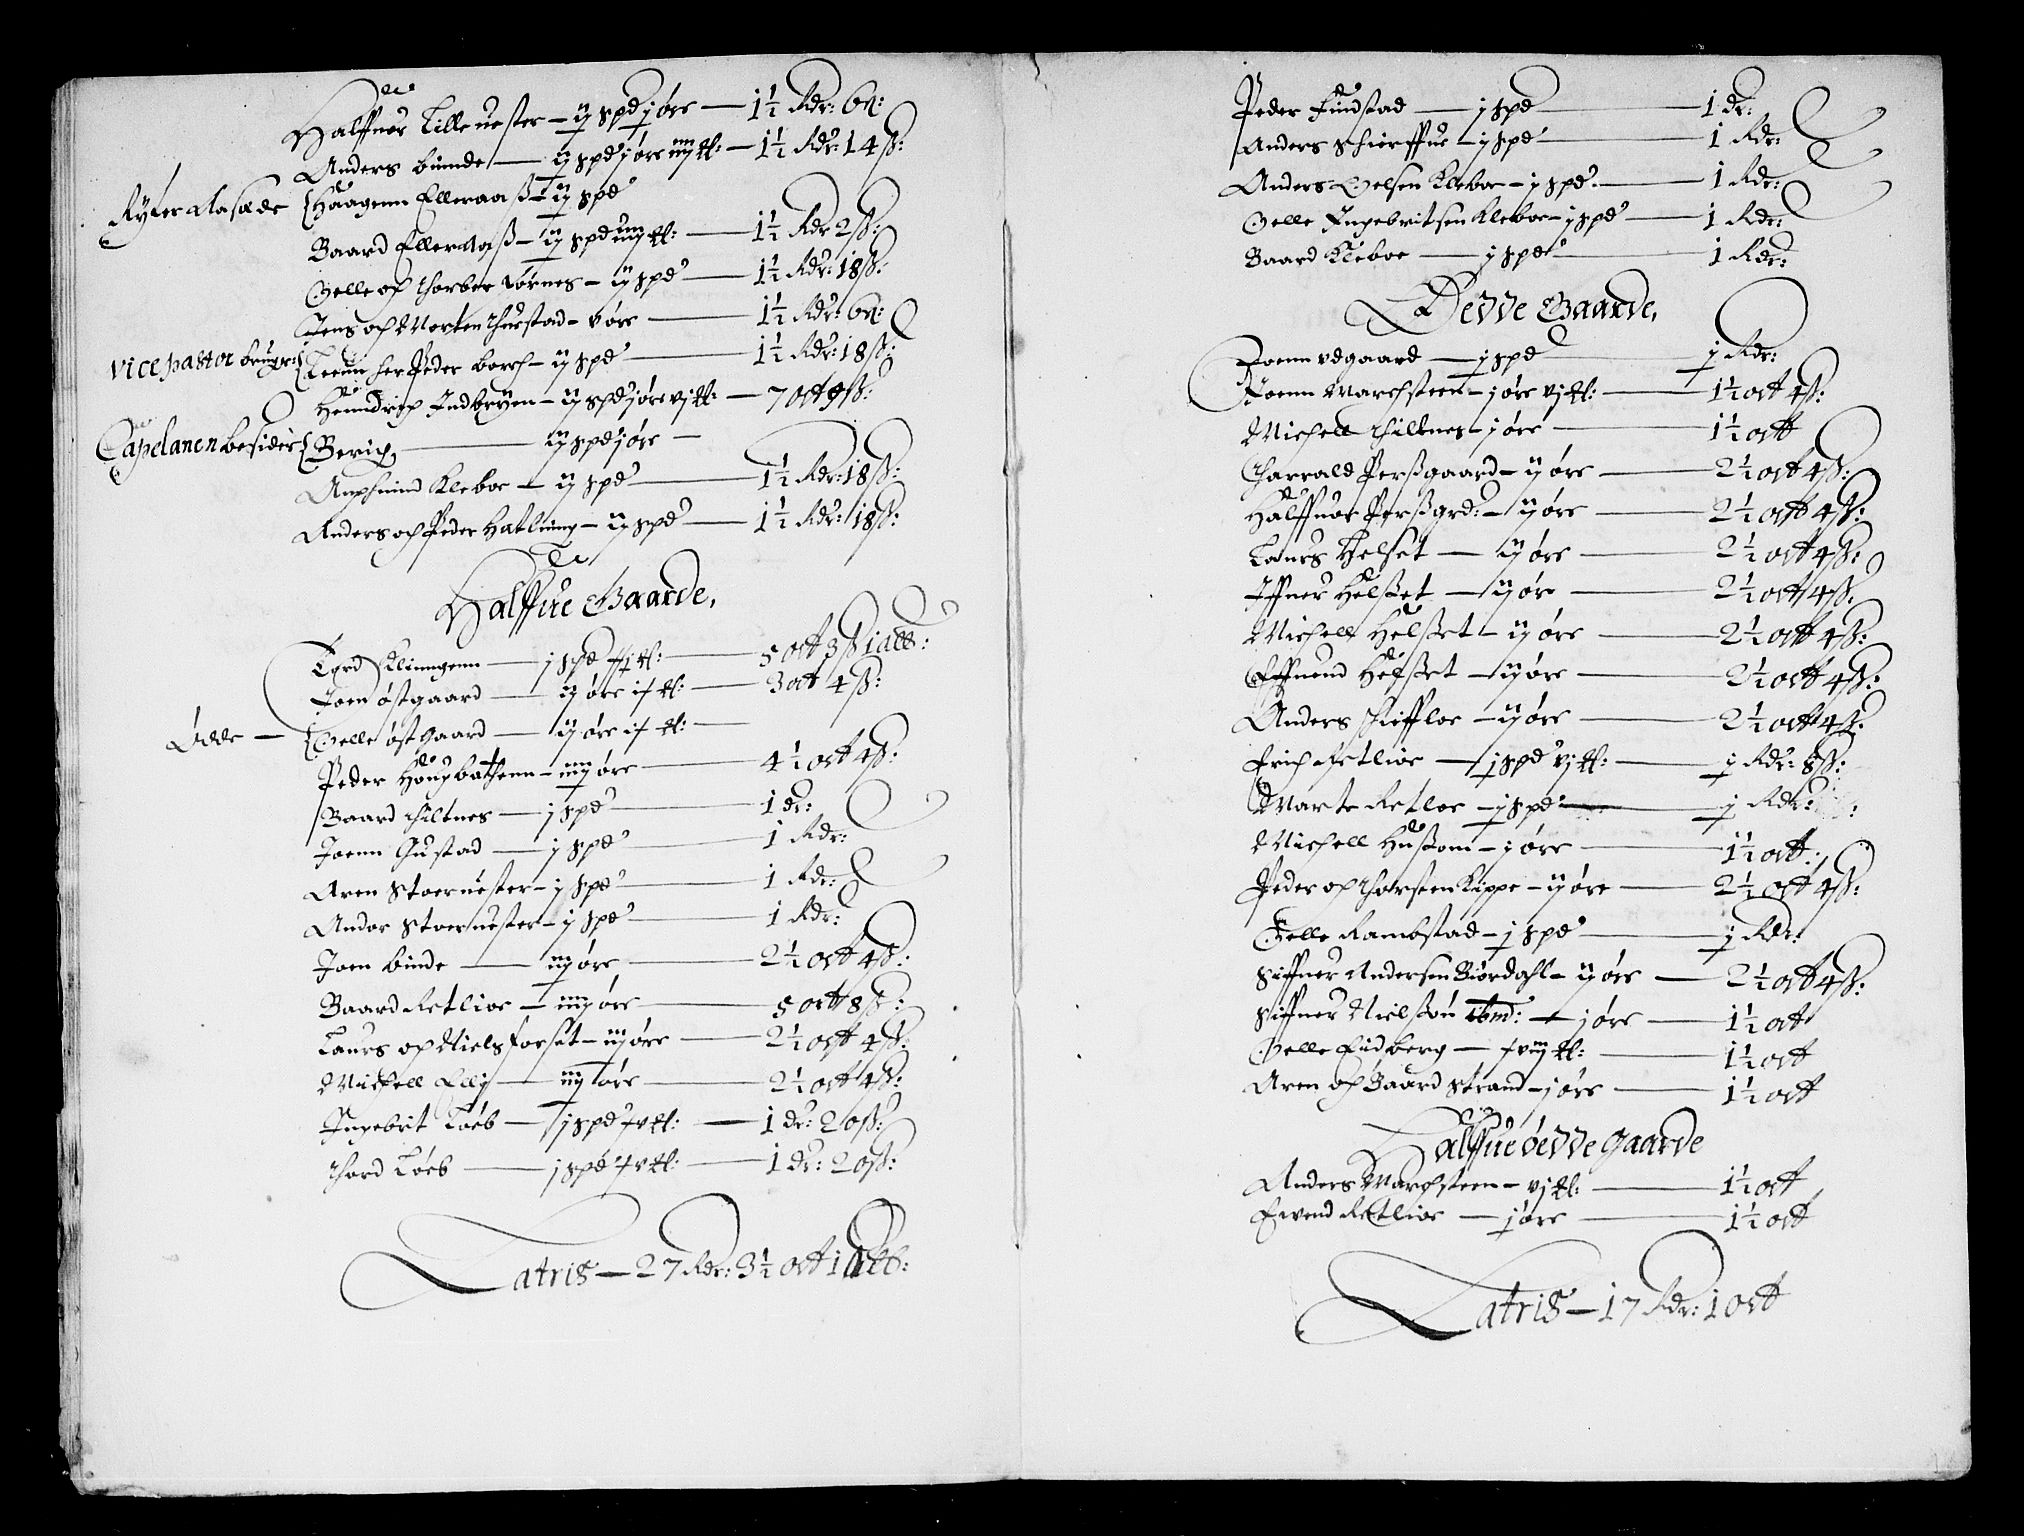 Halffuor Lilleuester – ij spd j øre – 1½ Rdr: 6 ß:
Anders bunde – ij spd j øre iiij kl: – 1½ Rdr: 14 ß:
Ryter Aasæde { Haagenn Elleraaß – ij spd
Baard Elleraaß – ij spd iiij kl: – 1½ Rdr 2 ß:
Oelle och Thorber Lørnes – ij spd – 1½ Rdr: 18 ß:
Jens och Morten Thuestad – v øre – 1½ Rdr: 6 ß:
vice pastor bruger: { Leenn her Peder borch – ij spd – 1½ Rdr: 18 ß:
Henndrich Indbryen – ij spd j øre vj kl: – 7 ort 9 ß:
Capelanen besider { Berich – ij spd j øre –
Amphuind Kleboe – ij spd – 1½ Rdr: 18 ß:
Anders och Peder Hatlning – ij spd – 1½ Rdr: 18 ß:
Halffue Gaarde,
Tord Klinngenn – j spd kl: – 5 ort 3 ß 1 alb:
Joen østgaard – ij øre kl: – 3 ort 4 ß:
Øde – { Oelle østgaard – ij øre kl: –
Peder Hougbathenn – iiij øre – 4½ ort 4 ß:
Baard Thiltnes – j spd – 1 dr:
Joenn Gustad – j spd – 1 Rdr:
Aren Stoeruester – j spd – 1 Rdr:
Andor Stoeruester – j spd – 1 Rdr:
Joen binde – iij øre – 2½ ort 4 ß:
Baard Retlioe – iiij øre – 5 ort 8 ß:
Laurs och Niels forset – iij øre – 2½ ort 4 ß:
Michell Elli – iij øre – 2½ ort 4 ß:
Ingebrit Løeb – j spd kl: – 1 dr: 20 ß:
Thord Løeb – j spd kl: – 1 dr: 20 ß:
Latris – 27 Rdr: 3½ ort 1 alb:
Peder Findstad – j spd – 1 dr:
Anders Schierffue – j spd – 1 Rdr:
Anders Oelsen Kleboe – j spd – 1 Rdr:
Oelle Ingebritsen Kleboe – j spd – 1 Rdr:
Baard Kleboe – j spd – 1 Rdr:
Øedde Gaarde,
Joenn vdgaard – j spd – j Rdr:
Joenn Marchsteen – j øre vj kl: – 1½ ort 4 ß:
Michell Thiltnes – j øre – 1½ ort
Harrald Perßgaard – ij øre – 2½ ort 4 ß:
Halffuor Perßgrd: – ij øre – 2½ ort 4 ß:
Laurs Helset – ij øre – 2½ ort 4 ß:
Iffuer Helßet – ij øre – 2½ ort 4 ß.
Michell Helßet – ij øre – 2½ ort 4 ß:
Effuend Helßet – ij øre – 2½ ort 4 ß:
Anders schieffloe – ij øre – 2½ ort 4 ß:
Erich Retlioe – j spd vj kl: – j Rdr: 8 ß:
Marte Retloe – j spd – j Rdr:
Michell Hußom – j øre – 1½ ort:
Peder och Thorsten Kippe – ij øre – 2½ ort 4 ß:
Oelle Rambstad – j spd – j Rdr:
Siffuer Andersen Biørdahl – ij øre – 2½ ort 4 ß:
Siffuer Nielßøn ibm: – j øre – 1½ ort
Oelle Eidberg – kl: – 1½ ort
Aren och Baard Strand – j øre – 1½ ort
Halffue øedde gaarde
Anders Marchsteen – vj kl: – 1½ ort
Evend Retlioe – j øre – 1½ ort
Latris – 17 Rdr: 1 ort